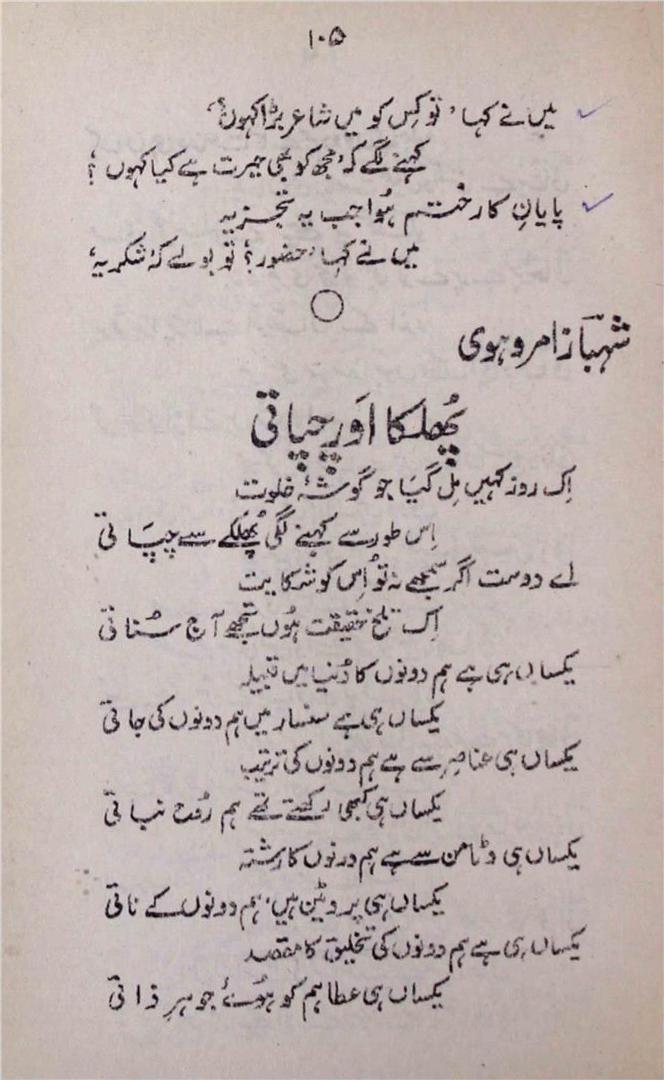 ۱۰۵
میں نے کہا، 'تو کِس کو میں شاعر بڑا کہوں؟'
کہنے لگے کہ 'مجھ کو بھی حیرت ہے کیا کہوں؟
پایانِ کار ختم ہُوا جب یہ تجزیہ
میں نے کہا 'حضور؟' تو بولے کہ 'شکریہ'
شہباز امروہوی
پُھلکا اور چپاتی
اِک روز کہیں مِل گیا جو گوشۂ خلوت
اِس طور سے کہنے لگی پُھلکے سے چپاتی
اے دوست اگر سمجھے نہ تُو اِس کو شکایت
اِک تلخ حقیقت ہُوں تجھے آج سُناتی
یکساں ہی ہے ہم دونوں کا دُنیا میں قبیلہ
یکساں ہی ہے سنسار میں ہم دونوں کی جاتی
یکساں ہی عناصِر سے ہے ہم دونوں کی ترتیب
یکساں ہی کبھی رکھتے تھے ہم رُوحِ نباتی
یکساں ہی وٹامن سے ہے ہم دونوں کا رشتہ
یکساں ہی پروٹین ہیں، ہم دونوں کے ناتی
یکساں ہی ہے ہم دونوں کی تخلیق کا مقصد
یکساں ہی عطا ہم کو ہُوئے جوہرِ ذاتی